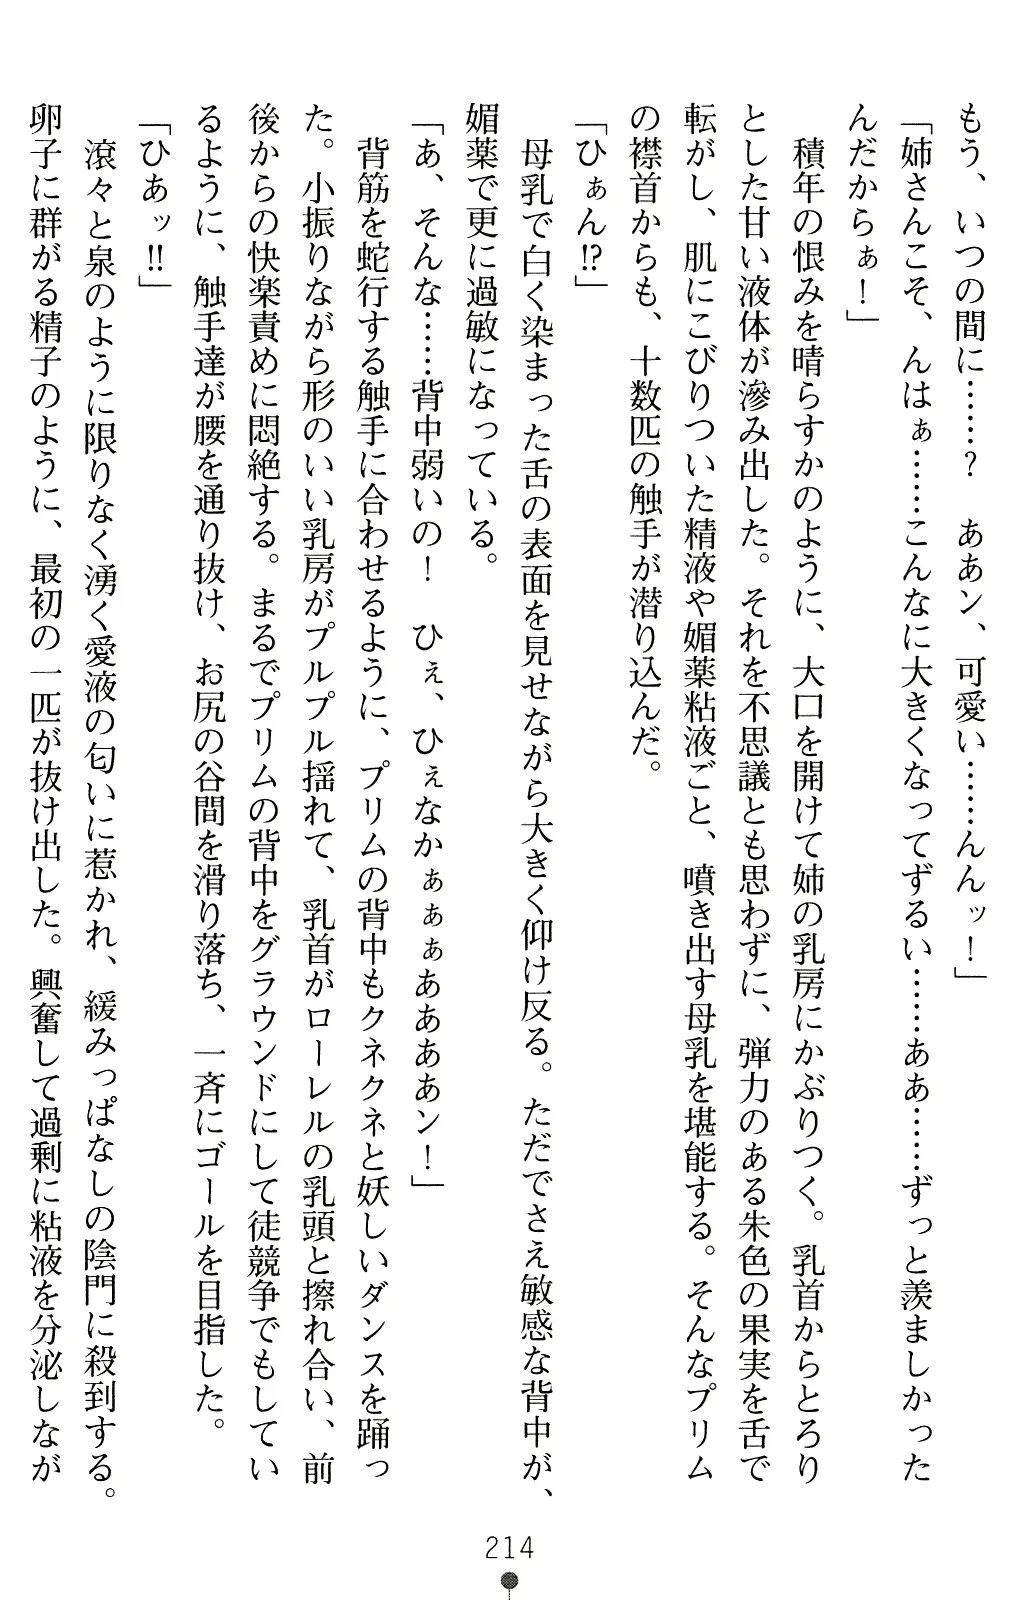 もう、いつの間に……？　ああン、可愛い……んんッ！」
「姉さんこそ、んはぁ……こんなに大きくなってずるい……ああ……ずっと羨ましかった
んだからぁ！」
　積年の恨みを晴らすかのように、大口を開けて姉の乳房にかぶりつく。乳首からとろり
とした甘い液体が滲み出した。それを不思議とも思わずに、弾力のある朱色の果実を舌で
転がし、肌にこびりついた精液や媚薬粘液ごと、噴き出す母乳を堪能する。そんなプリム
の襟首からも、十数匹の触手が潜り込んだ。
「ひぁん!?」
　母乳で白く染まった舌の表面を見せながら大きく仰け反る。ただでさえ敏感な背中が、
媚薬で更に過敏になっている。
「あ、そんな……背中弱いの！　ひぇ、ひぇなかぁぁぁああああン！」
　背筋を蛇行する触手に合わせるように、プリムの背中もクネクネと妖しいダンスを踊っ
た。小振りながら形のいい乳房がプルプル揺れて、乳首がローレルの乳頭と擦れ合い、前
後からの快楽責めに悶絶する。まるでプリムの背中をグラウンドにして徒競争でもしてい
るように、触手達が腰を通り抜け、お尻の谷間を滑り落ち、一斉にゴールを目指した。
「ひあッ!!」
　滾々と泉のように限りなく湧く愛液の匂いに惹かれ、緩みっぱなしの陰門に殺到する。
卵子に群がる精子のように、最初の一匹が抜け出した。興奮して過剰に粘液を分泌しなが
214